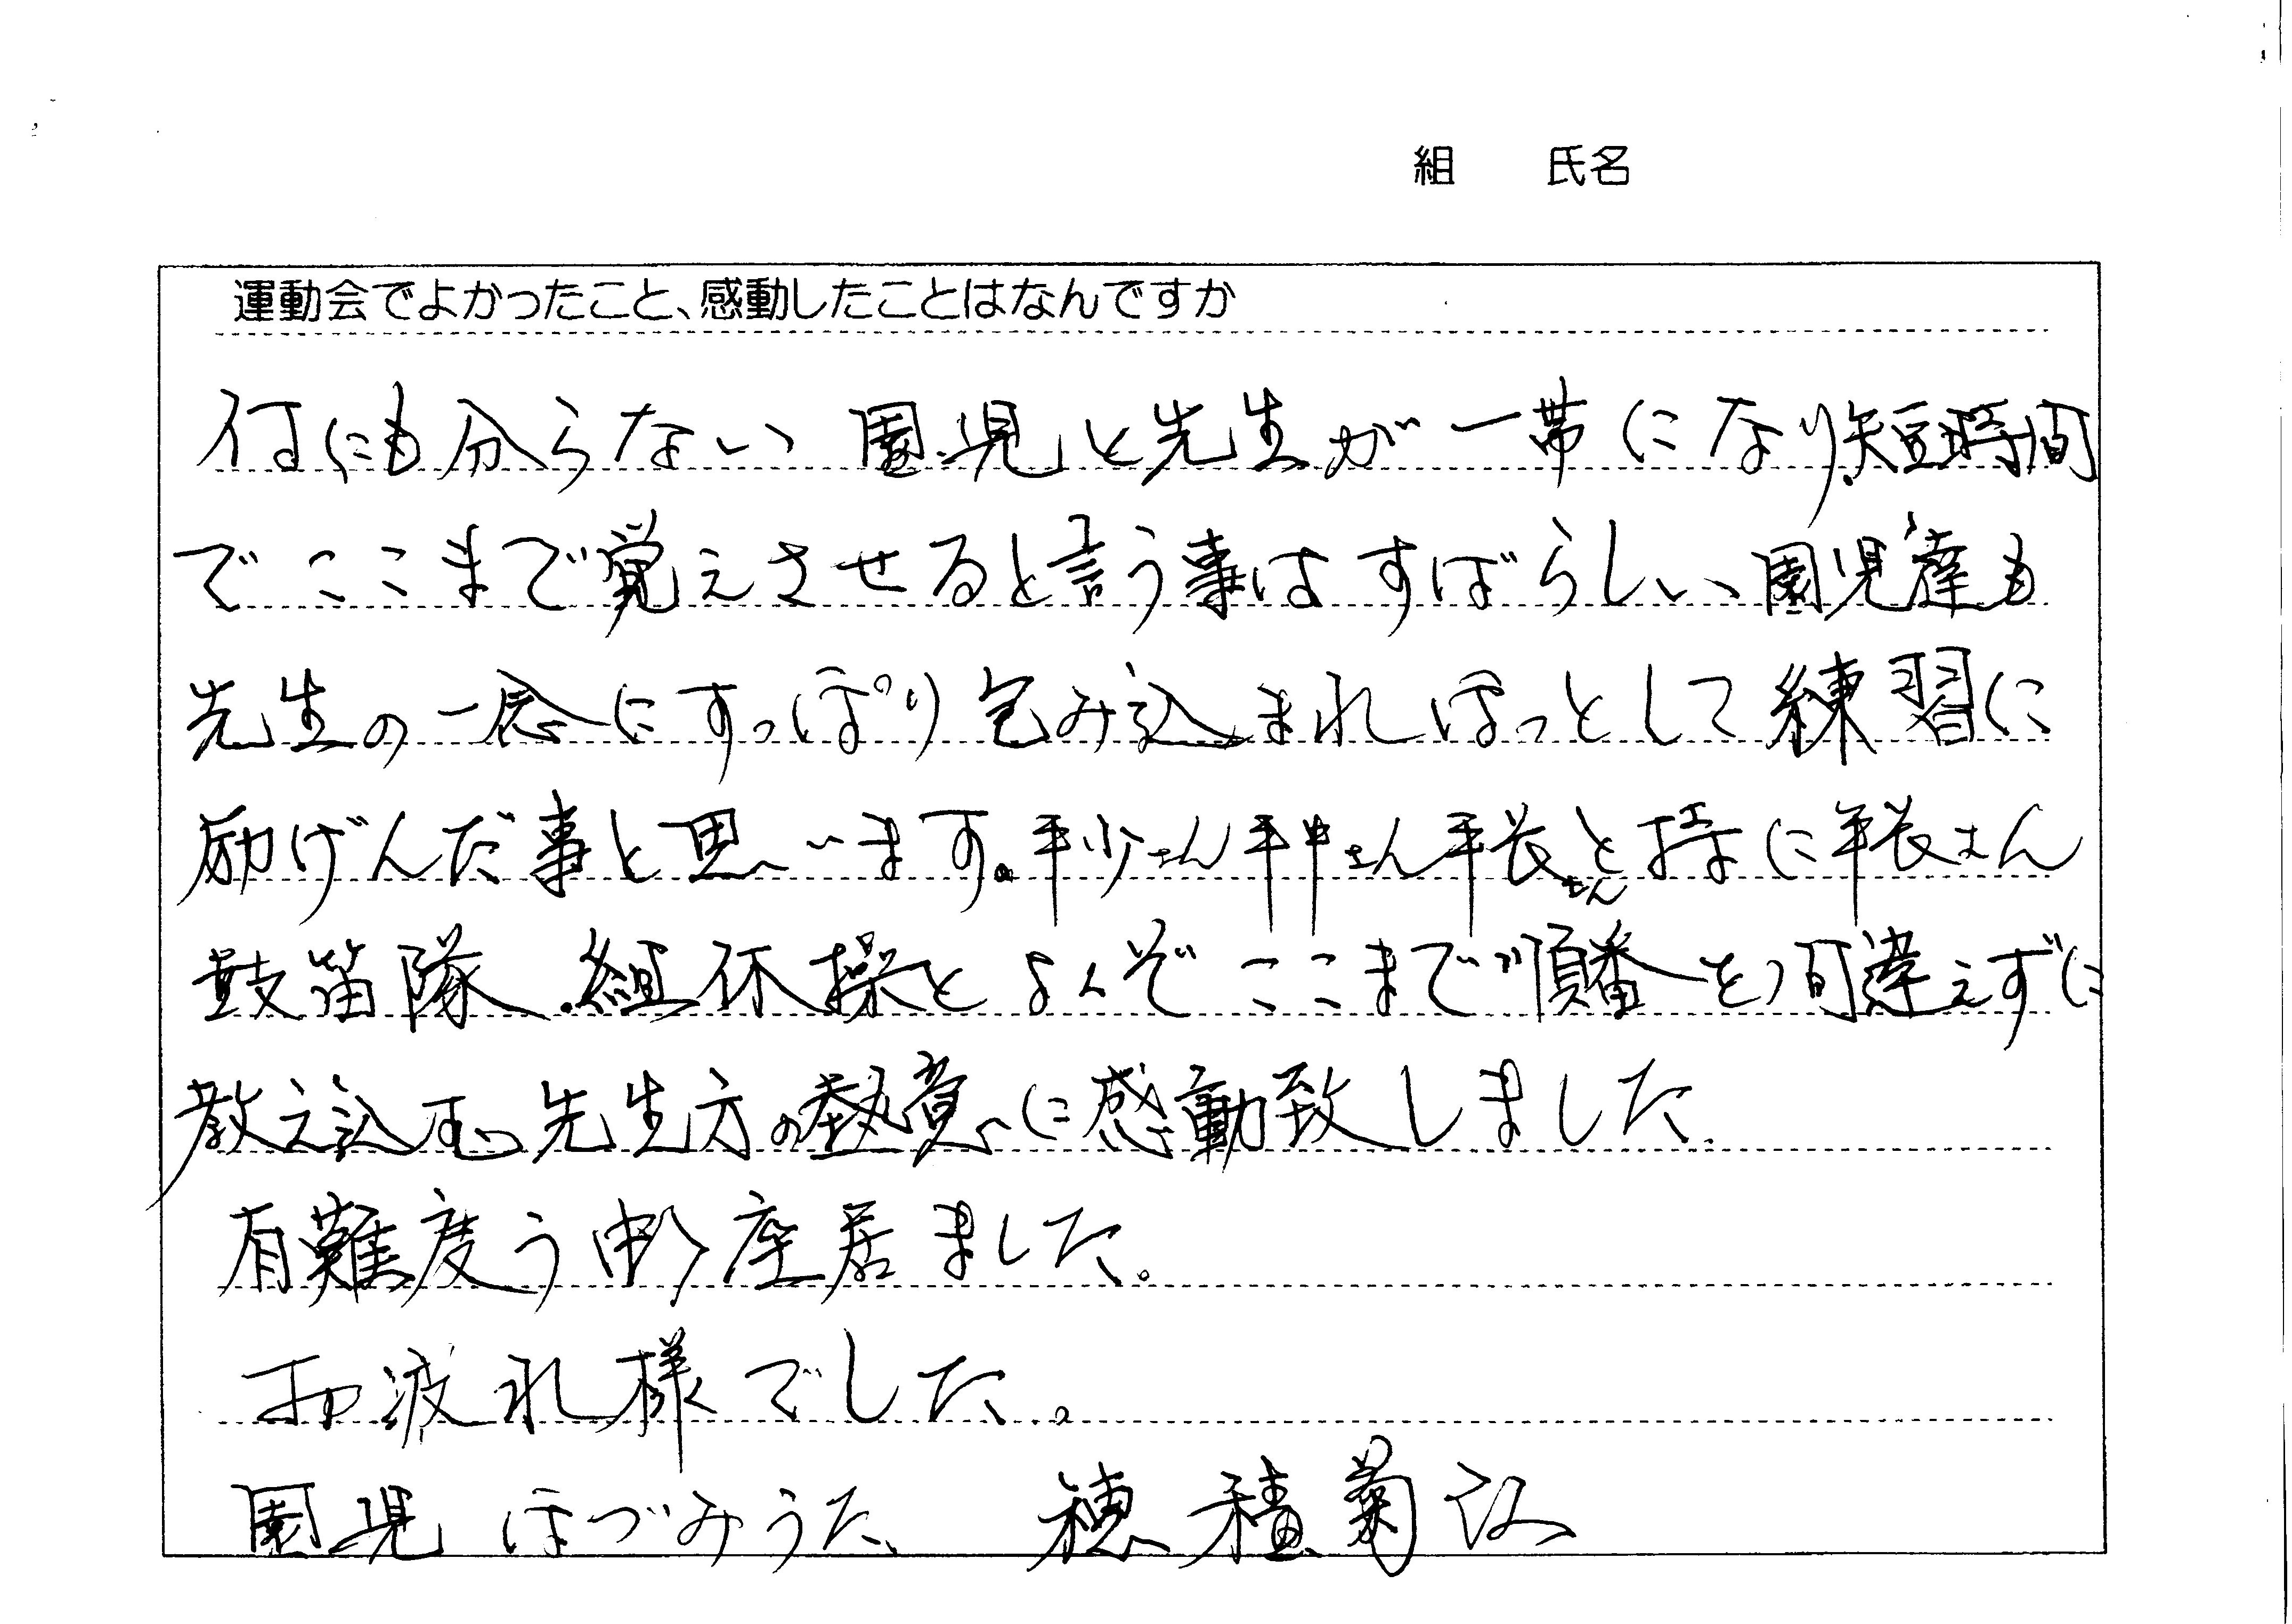 組 氏名
運動会でよかったこと、感動したことはなんですか
何にも分らない園児と先生が一帯になり、短時間
でここまで覚えさせると言う事はすばらしい、園児達も
先生の一念にすっぽり包み込まれほっとして練習に
励げんだ事と思います。年少さん年中さん年長さんと特に年長さん
鼓笛隊、組体操とよくぞここまで順番を間違えずに
教え込む先生方の熱意に感動致しました。
有難度う御座居ました。
お疲れ様でした。
園児 ほづみうた 穂積菊